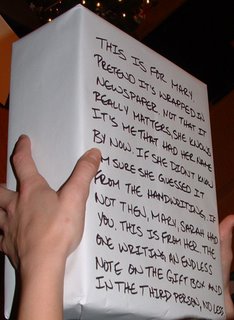 THIS IS FOR MARY
PRETEND IT'S WRAPPED IN
NEWSPAPER. NOT THAT IT
REALLY MATTERS, SHE KNOWS
IT'S ME THAT HAD HER NAME
BY NOW. IF SHE DIDN'T KNOW
I'M SURE SHE GUESSED IT
FROM THE HANDWRITING, IF
NOT THEN, MARY, SARAH HAD
YOU. THIS IS FROM HER. THE
ONE WRITING AN ENDLESS
NOTE ON THE GIFT BOX AND
IN THE THIRD PERSON, NO LESS